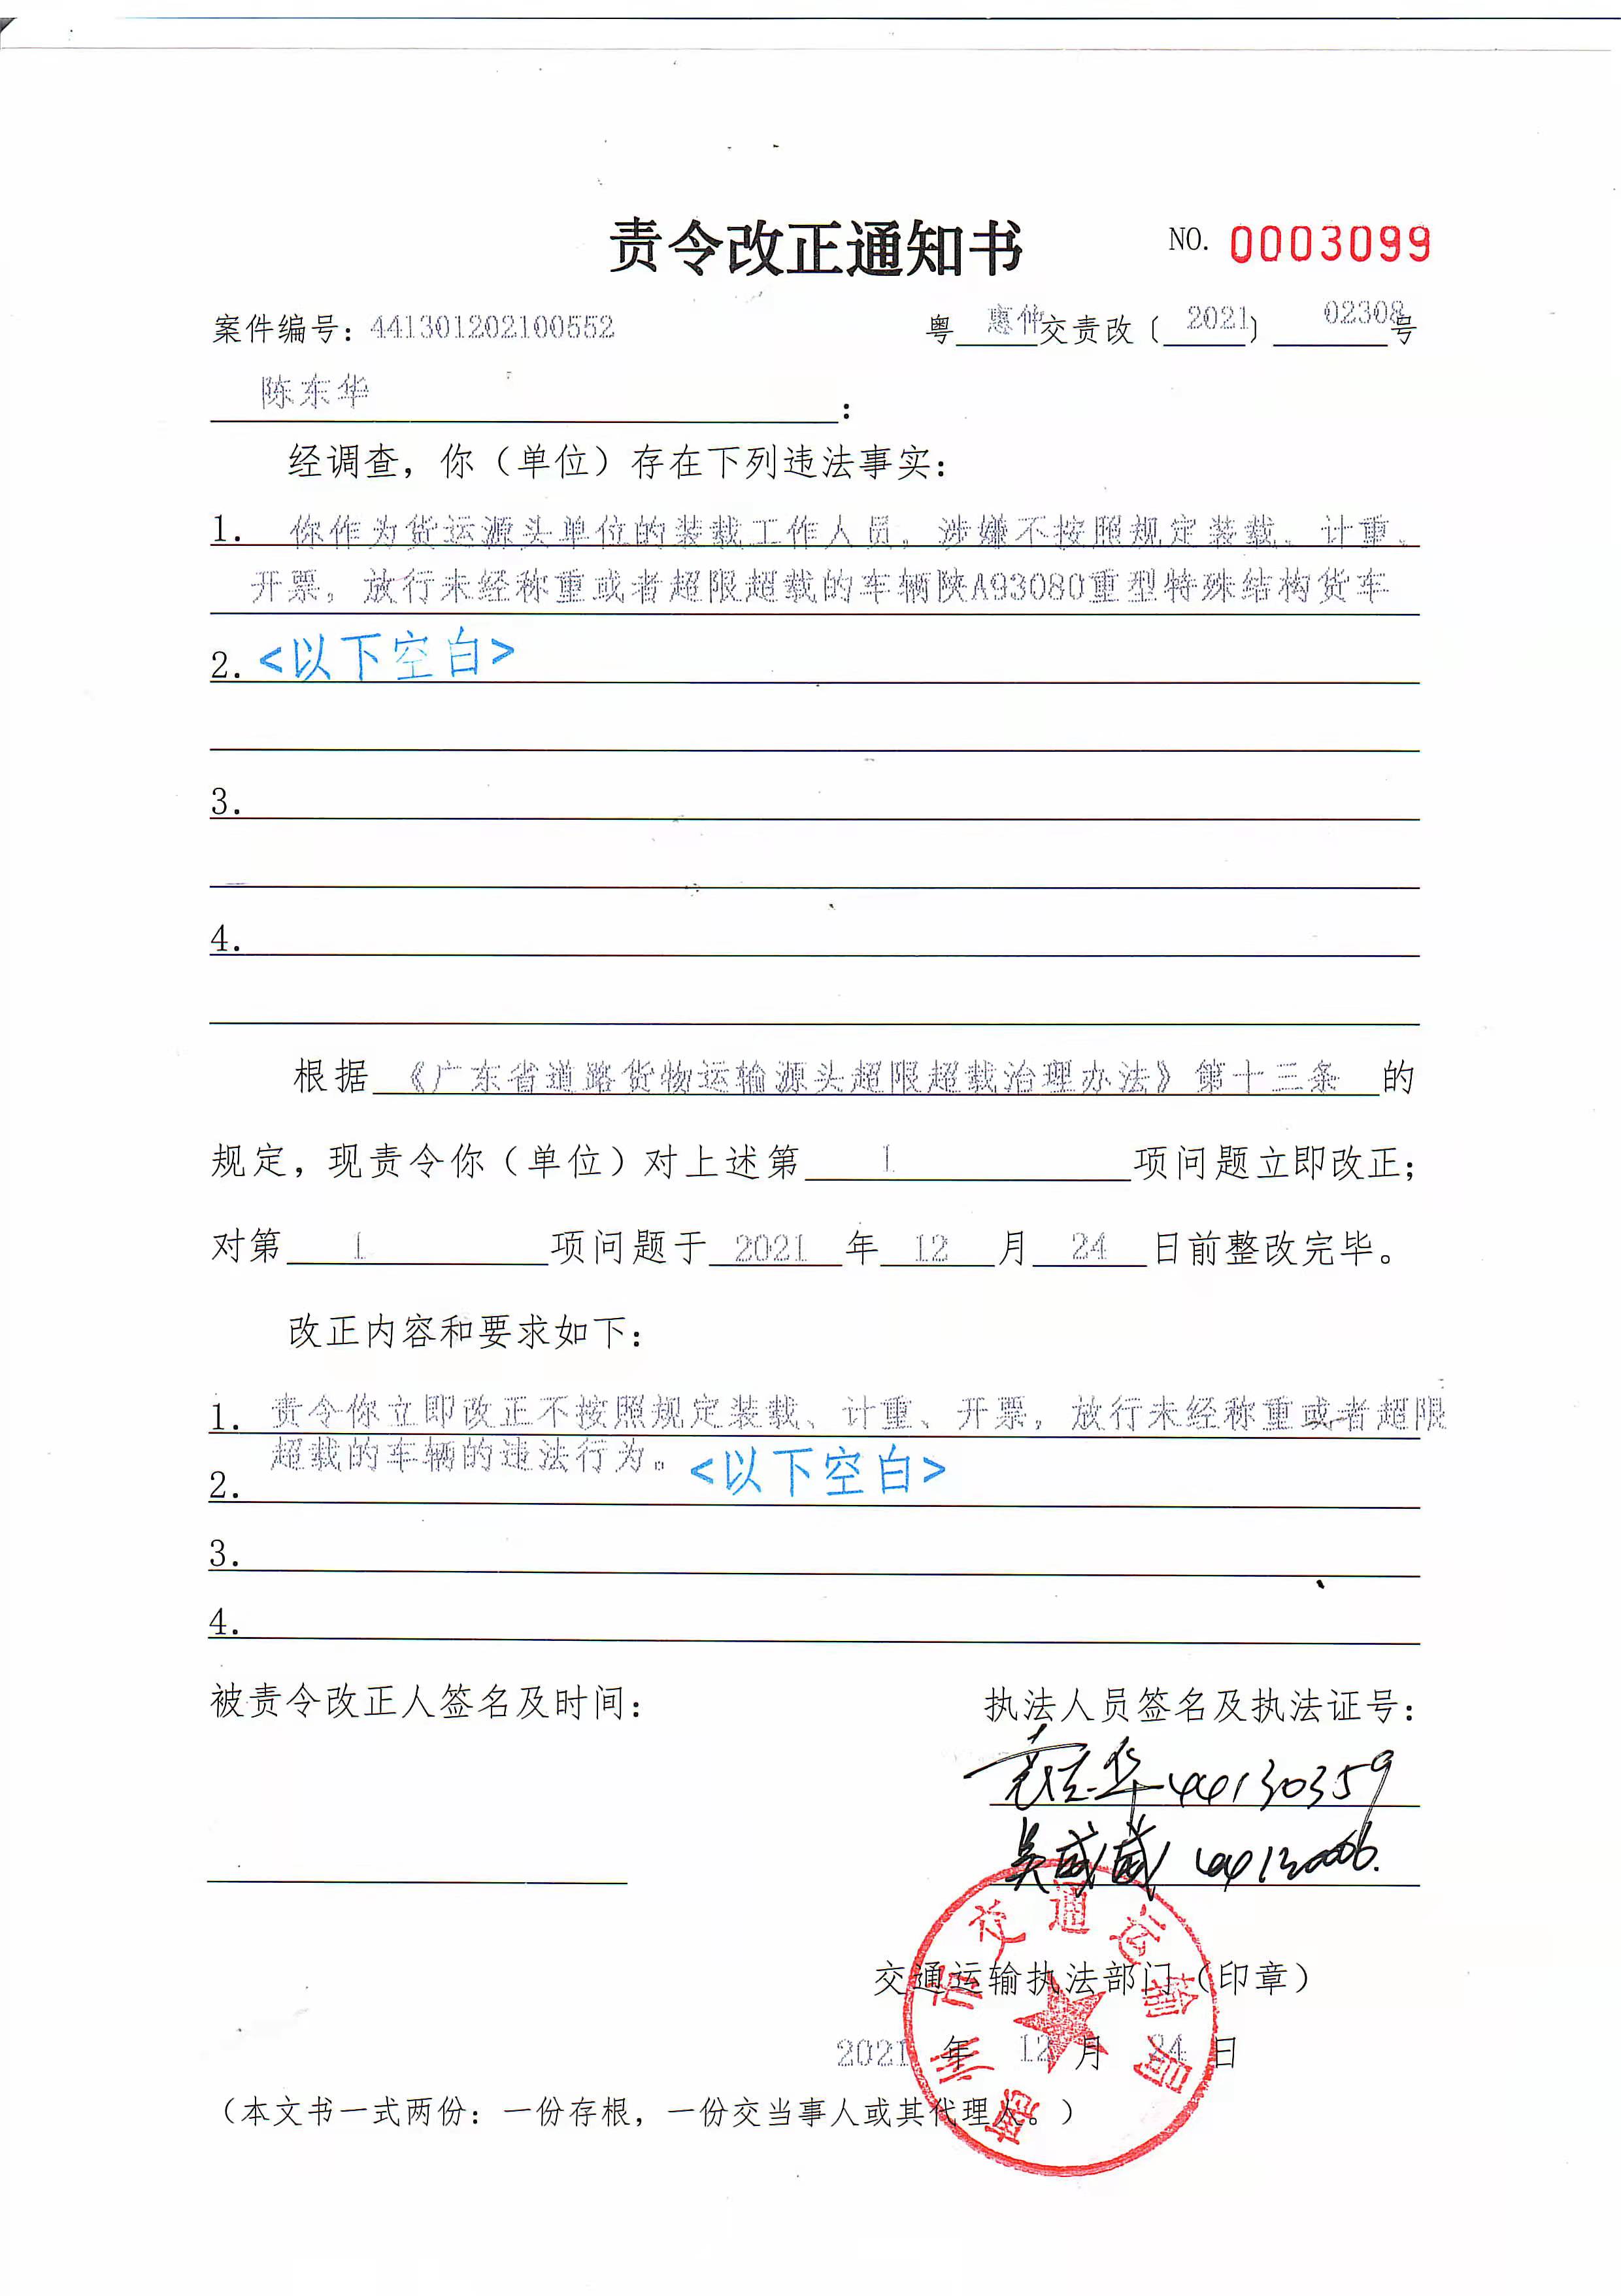 责令改正通知书 NO. 0003099
案件编号：441301202100552 粤惠仲交责改〔2021〕02308号
陈东华：
经调查，你（单位）存在下列违法事实：
1. 你作为货运源头单位的装载工作人员，涉嫌不按照规定装载、计重、
开票，放行未经称重或者超限超载的车辆陕A93080重型特殊结构货车
2. <以下空白>
3.
4.
根据《广东省道路货物运输源头超限超载治理办法》第十三条的
规定，现责令你（单位）对上述第1项问题立即改正；
对第1项问题于2021年12月24日前整改完毕。
改正内容和要求如下：
1. 责令你立即改正不按照规定装载、计重、开票，放行未经称重或者超限
超载的车辆的违法行为。<以下空白>
2.
3.
4.
被责令改正人签名及时间： 执法人员签名及执法证号：
44130359
吴威威
惠州市交通运输局
交通运输执法部门（印章）
2021年12月24日
（本文书一式两份：一份存根，一份交当事人或其代理人。）